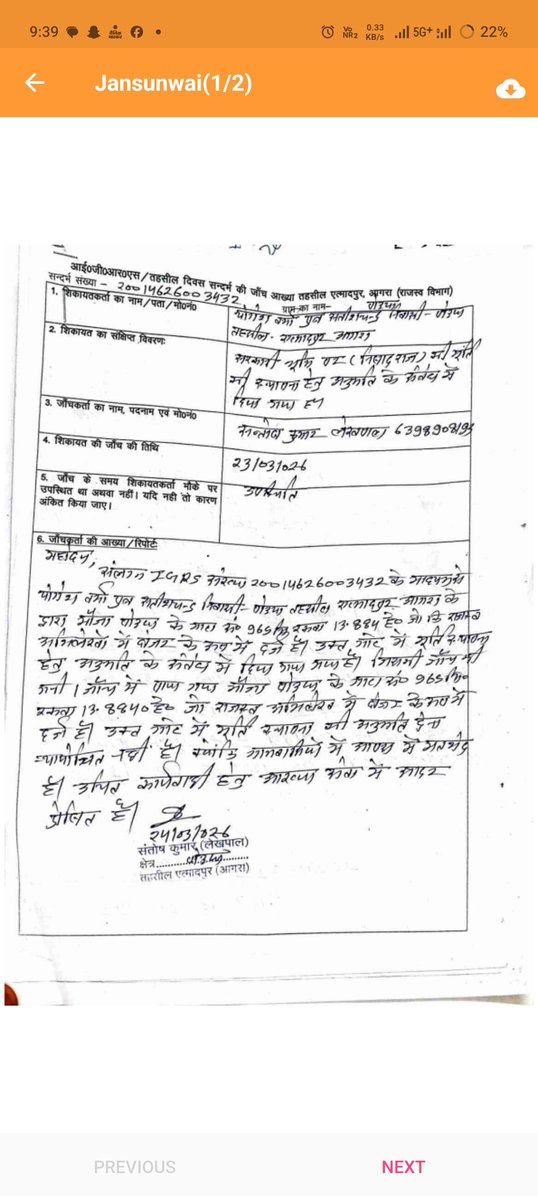 9:39
Vo NR2
0.33 KB/s
5G+
22%
Jansunwai(1/2)
आई०जी०आर०एस/तहसील दिवस सन्दर्भ की जाँच आख्या तहसील एत्मादपुर, आगरा (राजस्व विभाग)
सन्दर्भ संख्या - 20014626003432 ग्राम का नाम-
1. शिकायतकर्ता का नाम/पता/मो०नं०
निवासी-
तहसील- एत्मादपुर आगरा
2. शिकायत का संक्षिप्त विवरणः
सरकारी भूमि पर (निषादराज) की मूर्ति
की स्थापना हेतु अनुमति के संबंध में
दिया गया है।
3. जाँचकर्ता का नाम, पदनाम एवं मो०नं०
सन्तोष कुमार लेखपाल
4. शिकायत की जाँच की तिथि
23/03/026
5. जाँच के समय शिकायतकर्ता मौके पर
उपस्थित था अथवा नहीं। यदि नही तो कारण
अंकित किया जाए।
6. जाँचकर्ता की आख्या/रिपोर्टः
महोदय,
संलग्न IGRS सन्दर्भ 20014626003432 के माध्यम से
निवासी- तहसील एत्मादपुर आगरा के
द्वारा मौजा के गाटा सं० रकबा 13.884 हे० जो कि राजस्व
अभिलेखों में बंजर के रूप में दर्ज है। उक्त गाटे में मूर्ति स्थापना
हेतु अनुमति के संबंध में दिया गया है। जिसकी जाँच की
गयी। जाँच में पाया गया मौजा के गाटा सं०
रकबा 13.8840 हे० जो राजस्व अभिलेख में बंजर के रूप में
दर्ज है। उक्त गाटे में मूर्ति स्थापना की अनुमति देना
न्यायोचित नहीं है। क्योंकि ग्रामवासियों में आपस में मतभेद
है। उचित कार्यवाही हेतु आख्या सेवा में सादर
प्रेषित है।
24/03/026
संतोष कुमार (लेखपाल)
क्षेत्र
तहसील एत्मादपुर (आगरा)
PREVIOUS
NEXT